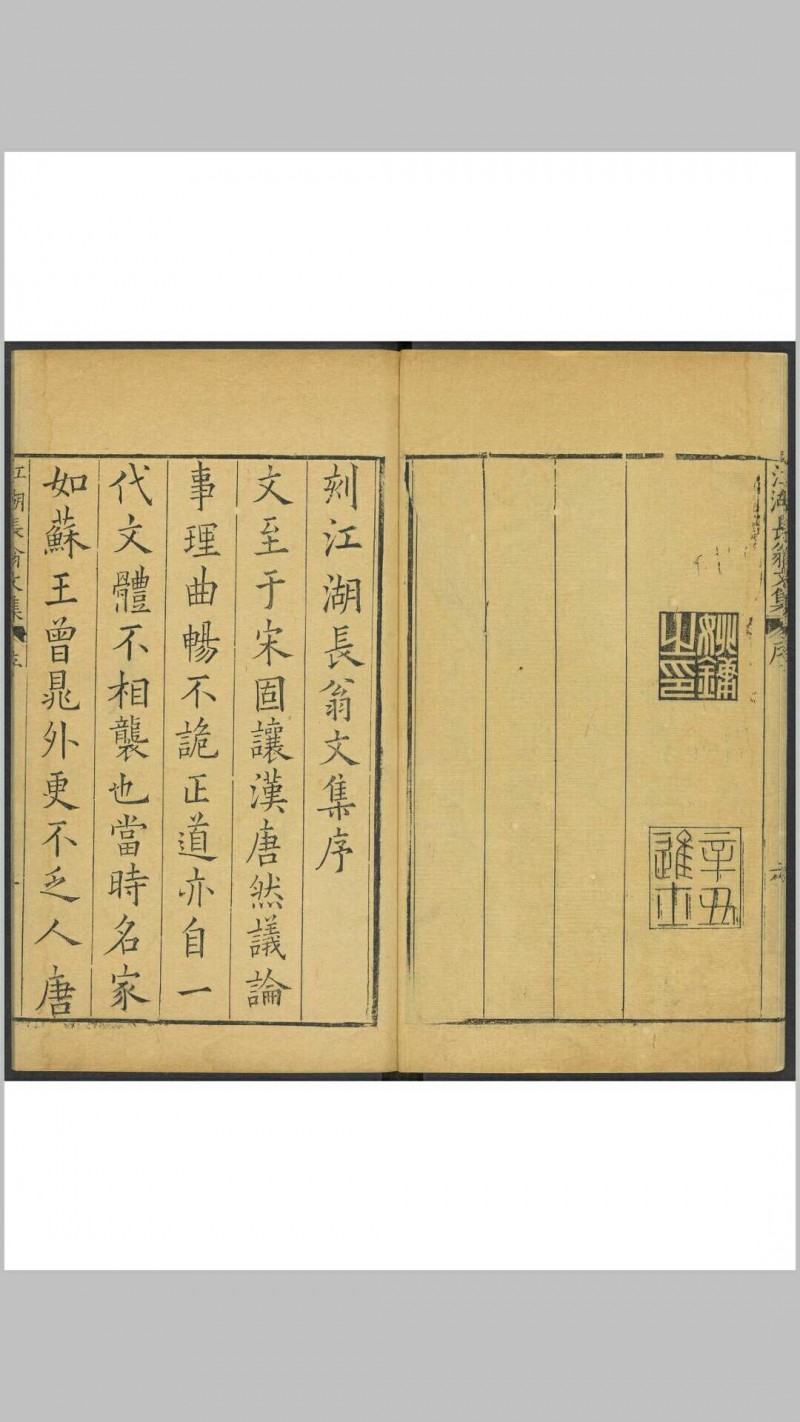 江湖長翁文集
序
姚鏞之印
辛丑進士
刻江湖長翁文集序
文至于宋固讓漢唐然議論
事理曲暢不詭正道亦自一
代文體不相襲也當時名家
如蘇王曾晁外更不乏人唐
江湖長翁文集